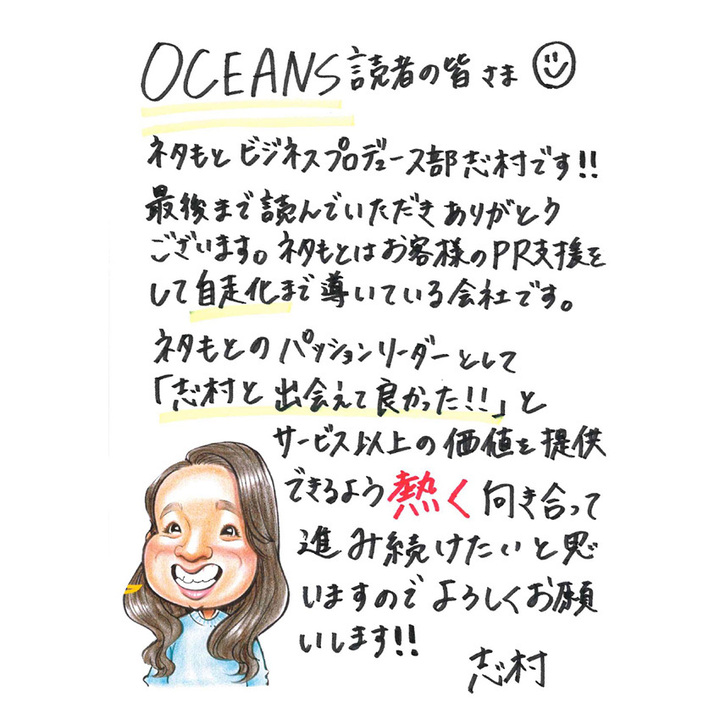 OCEANS読者の皆さま
ネタもと ビジネスプロデュース部志村です!!
最後まで読んでいただきありがとう
ございます。ネタもとはお客様のPR支援を
して自走化まで導いている会社です。
ネタもとのパッションリーダーとして
「志村と出会えて良かった!!」と
サービス以上の価値を提供
できるよう熱く向き合って
進み続けたいと思
いますのでよろしくお願
いします!!
志村